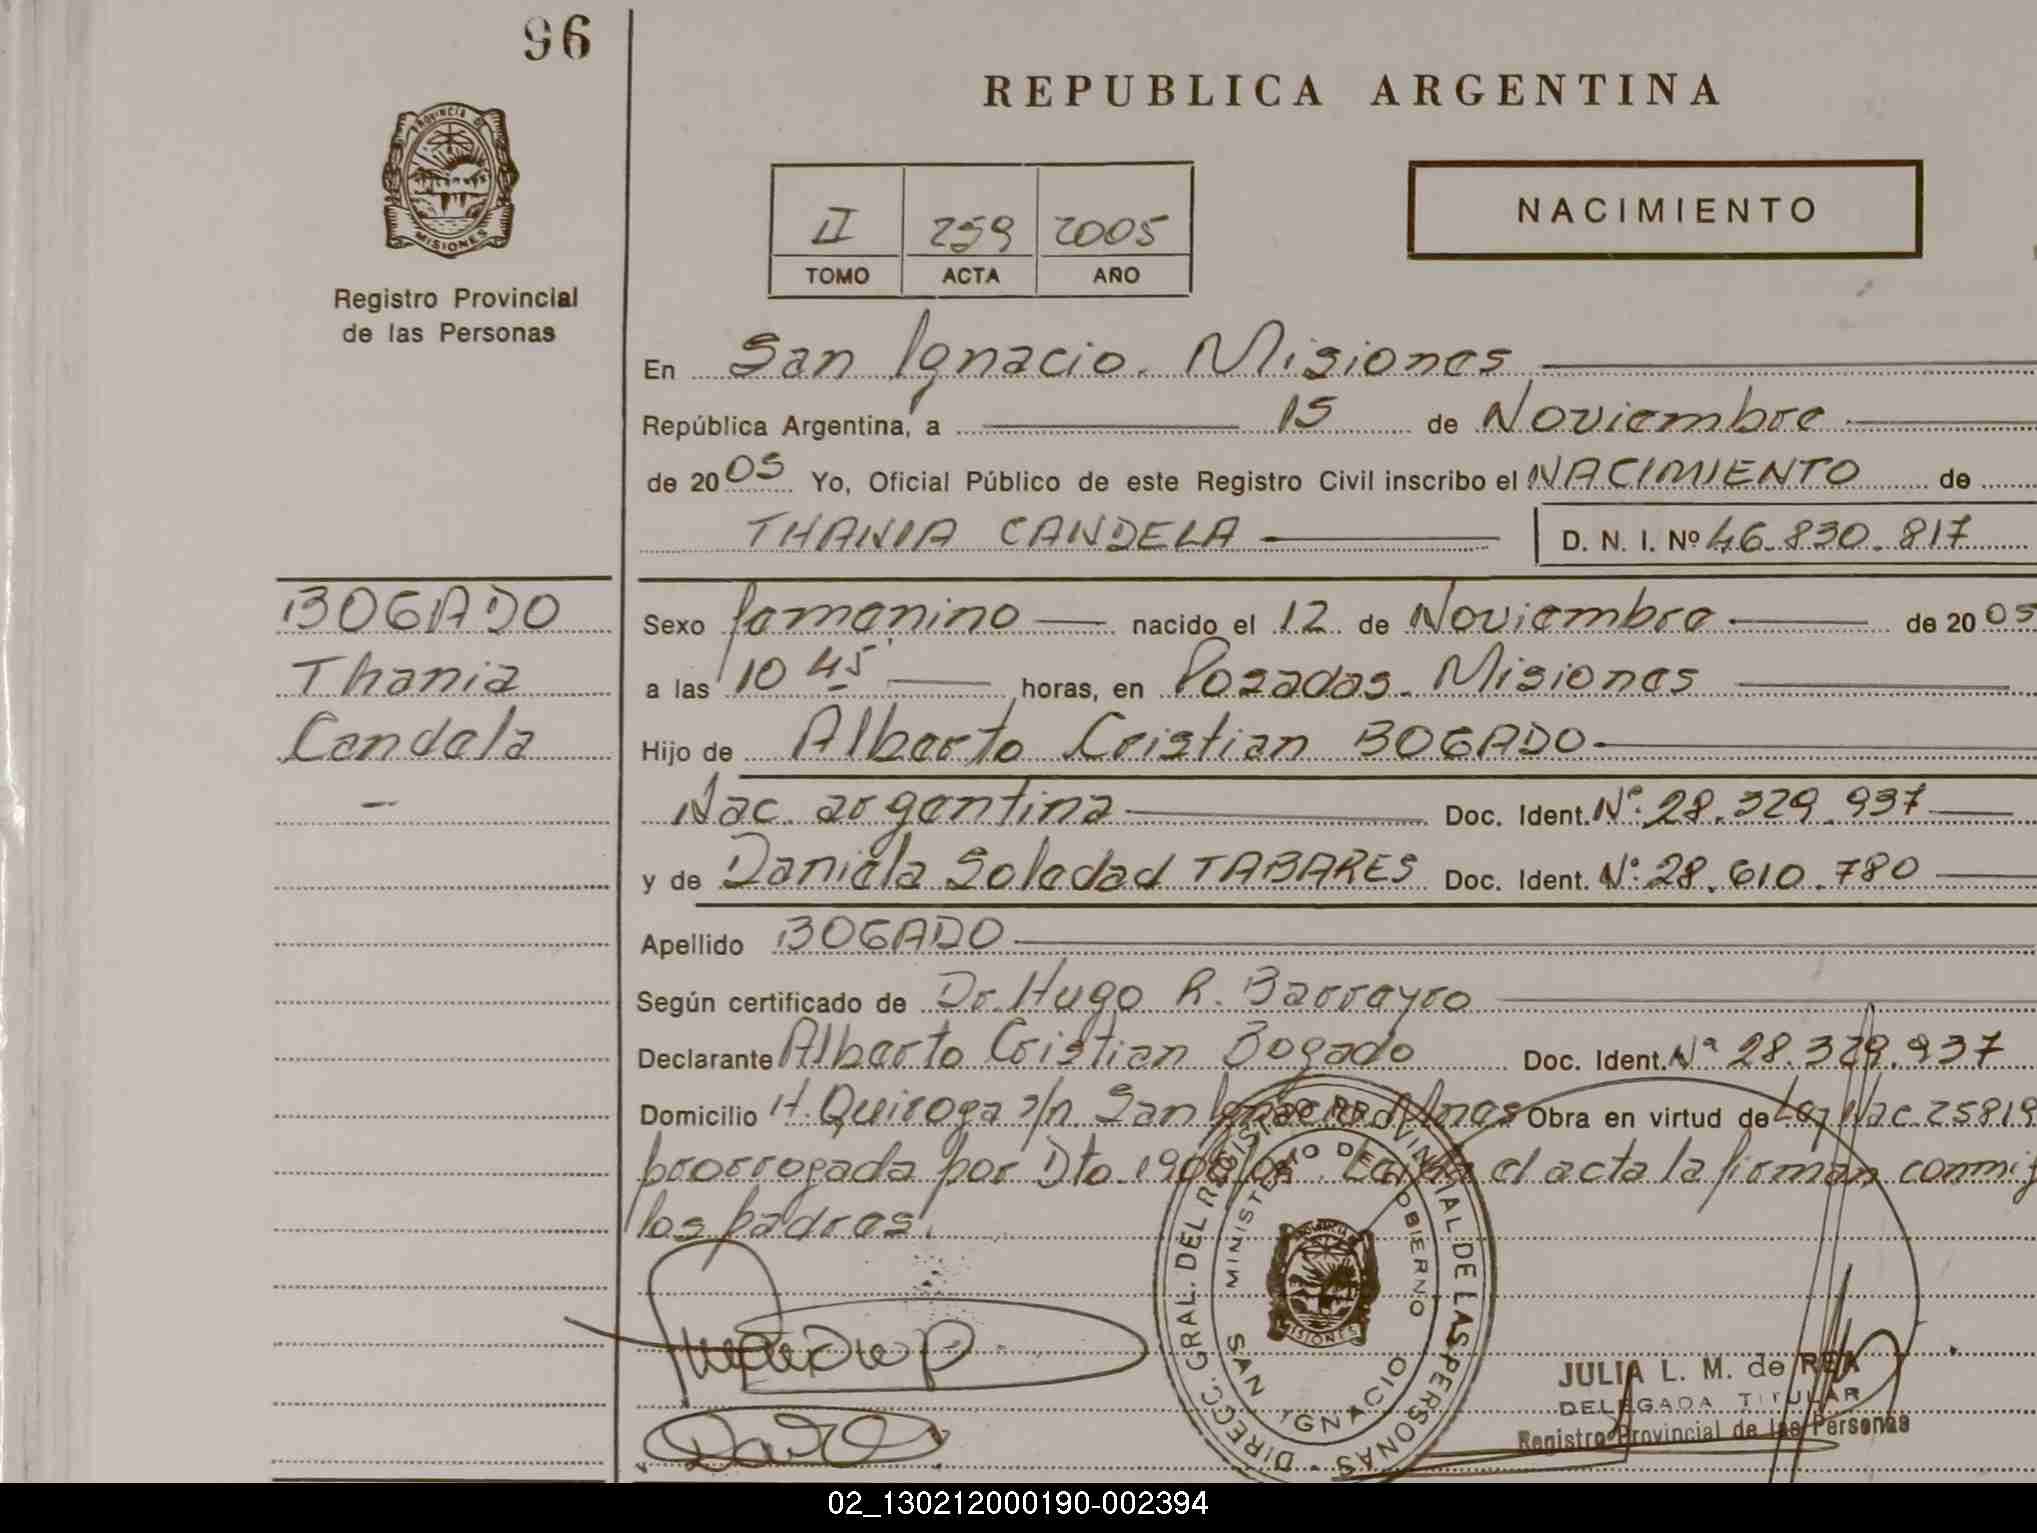 96
REPUBLICA ARGENTINA
PROVINCIA DE
MISIONES
Registro Provincial
de las Personas
II 259 2005
TOMO ACTA AÑO
NACIMIENTO
En San Ignacio. Misiones
República Argentina, a 15 de Noviembre
de 2005 Yo, Oficial Público de este Registro Civil inscribo el NACIMIENTO de
THANIA CANDELA D. N. I. Nº 46.830.817
BOGADO
Thania
Candela
Sexo femenino nacido el 12 de Noviembre de 2005
a las 10 45 horas, en Posadas. Misiones
Hijo de Alberto Cristian BOGADO
Nac. argentina Doc. Ident. Nº: 28.329.937
y de Daniela Soledad TABARES Doc. Ident. Nº: 28.610.780
Apellido BOGADO
Según certificado de Dr. Hugo R. Barreyro
Declarante Alberto Cristian Bogado Doc. Ident. Nº 28.329.937
Domicilio H. Quiroga s/n. San Ignacio Mnes Obra en virtud de Ley Nac. 25819
prorrogada por Dto. el acta la firman conmig
los padres.
DIRECC. GRAL. DEL REGISTRO PROVINCIAL DE LAS PERSONAS
MINISTERIO DE GOBIERNO
SAN IGNACIO
MISIONES
JULIA L. M. de REA
DELEGADA TITULAR
Registro Provincial de las Personas
02_130212000190-002394